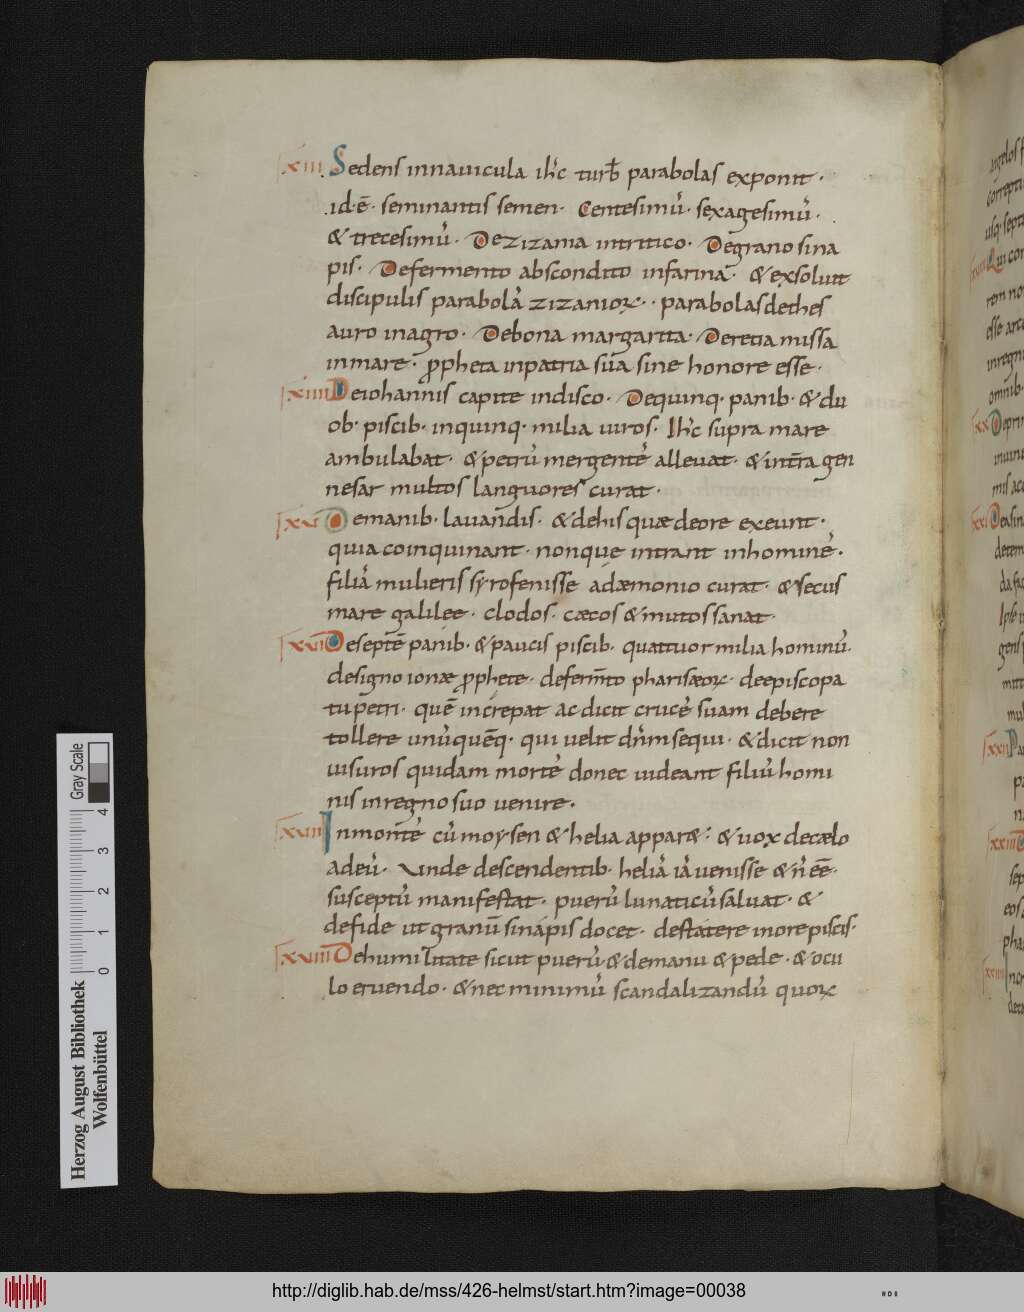 xiii Sedens innauicula ih̅c turb̅ parabolas exponit ·
id · ē · seminantis semen · Centesimū · sexagesimū ·
& trecesimū · De zizania intritico · Degrano sina
pis · Defermento abscondito infarina · & exsoluit
discipulis parabolā zizaniorꝝ · parabolas dethes
auro inagro · Debona margarita · Deretia missa
inmare · ꝓpheta inpatria sua sine honore esse ·
xiiii Deiohannis capite indisco · Dequinq · panib · & du
ob · piscib · inquinq · milia uiros · Ih̅c supra mare
ambulabat · & petrū mergentē alleuat · & intra gen
nesar multos languores curat ·
xv Demanib · lauandis · & dehis quæ deore exeunt ·
quia coinquinant · nonque intrant inhominē ·
filiā mulieris syrofenisse adæmonio curat · & secus
mare galilee · clodos · cæcos & mutos sanat ·
xvi Deseptē panib · & paucis piscib · quattuor milia hominū ·
designo ionæ ꝓphete · deferm̅to pharisæoꝝ · deepiscopa
tu petri · quē increpat ac dicit crucē suam debere
tollere unūquēq · qui uelit dn̅m sequi · & dicit non
uisuros quidam mortē donec uideant filiū homi
nis inregno suo uenire ·
xvii Inmontē cū moysen & helia appar& · & uox decælo
adeū · Unde descendentib · heliā iā uenisse & n̄ eē ·
susceptū manifestat · puerū lunaticū saluat · &
defide ut granū sinapis docet · destatere inore piscis ·
xviii Dehumilitate sicut puerū · & demanu & pede · & ocu
lo eruendo · & nec minimū scandalizandū quoꝝ
Herzog August Bibliothek
Wolfenbüttel
Gray Scale
0 1 2 3 4
http://diglib.hab.de/mss/426-helmst/start.htm?image=00038